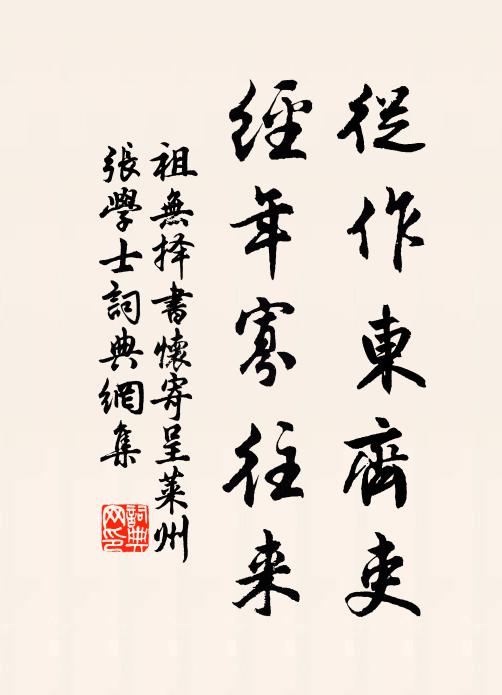 從作東齊吏
經年寡往来
祖無择書懷寄呈萊州
張學士詞典網集
詞典
网印